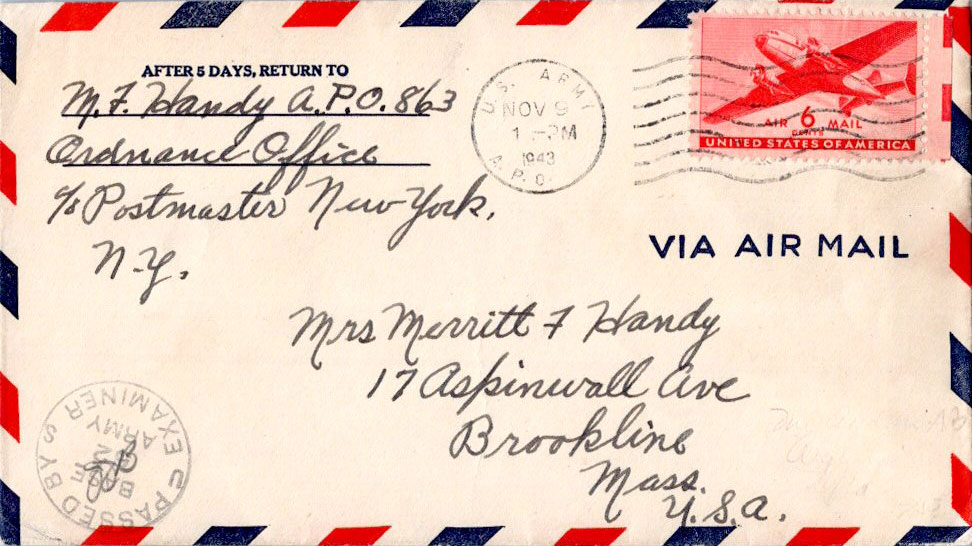 AFTER 5 DAYS, RETURN TO
M. F. Handy A.P.O. 863
Ordnance Office
c/o Postmaster New York,
N.Y.
U.S. ARMY
NOV 9
1 - PM
1943
A. P. O.
AIR 6 MAIL
CENTS
UNITED STATES OF AMERICA
VIA AIR MAIL
Mrs Merritt F Handy
17 Aspinwall Ave
Brookline
Mass.
U.S.A.
PASSED BY
U S
ARMY
EXAMINER